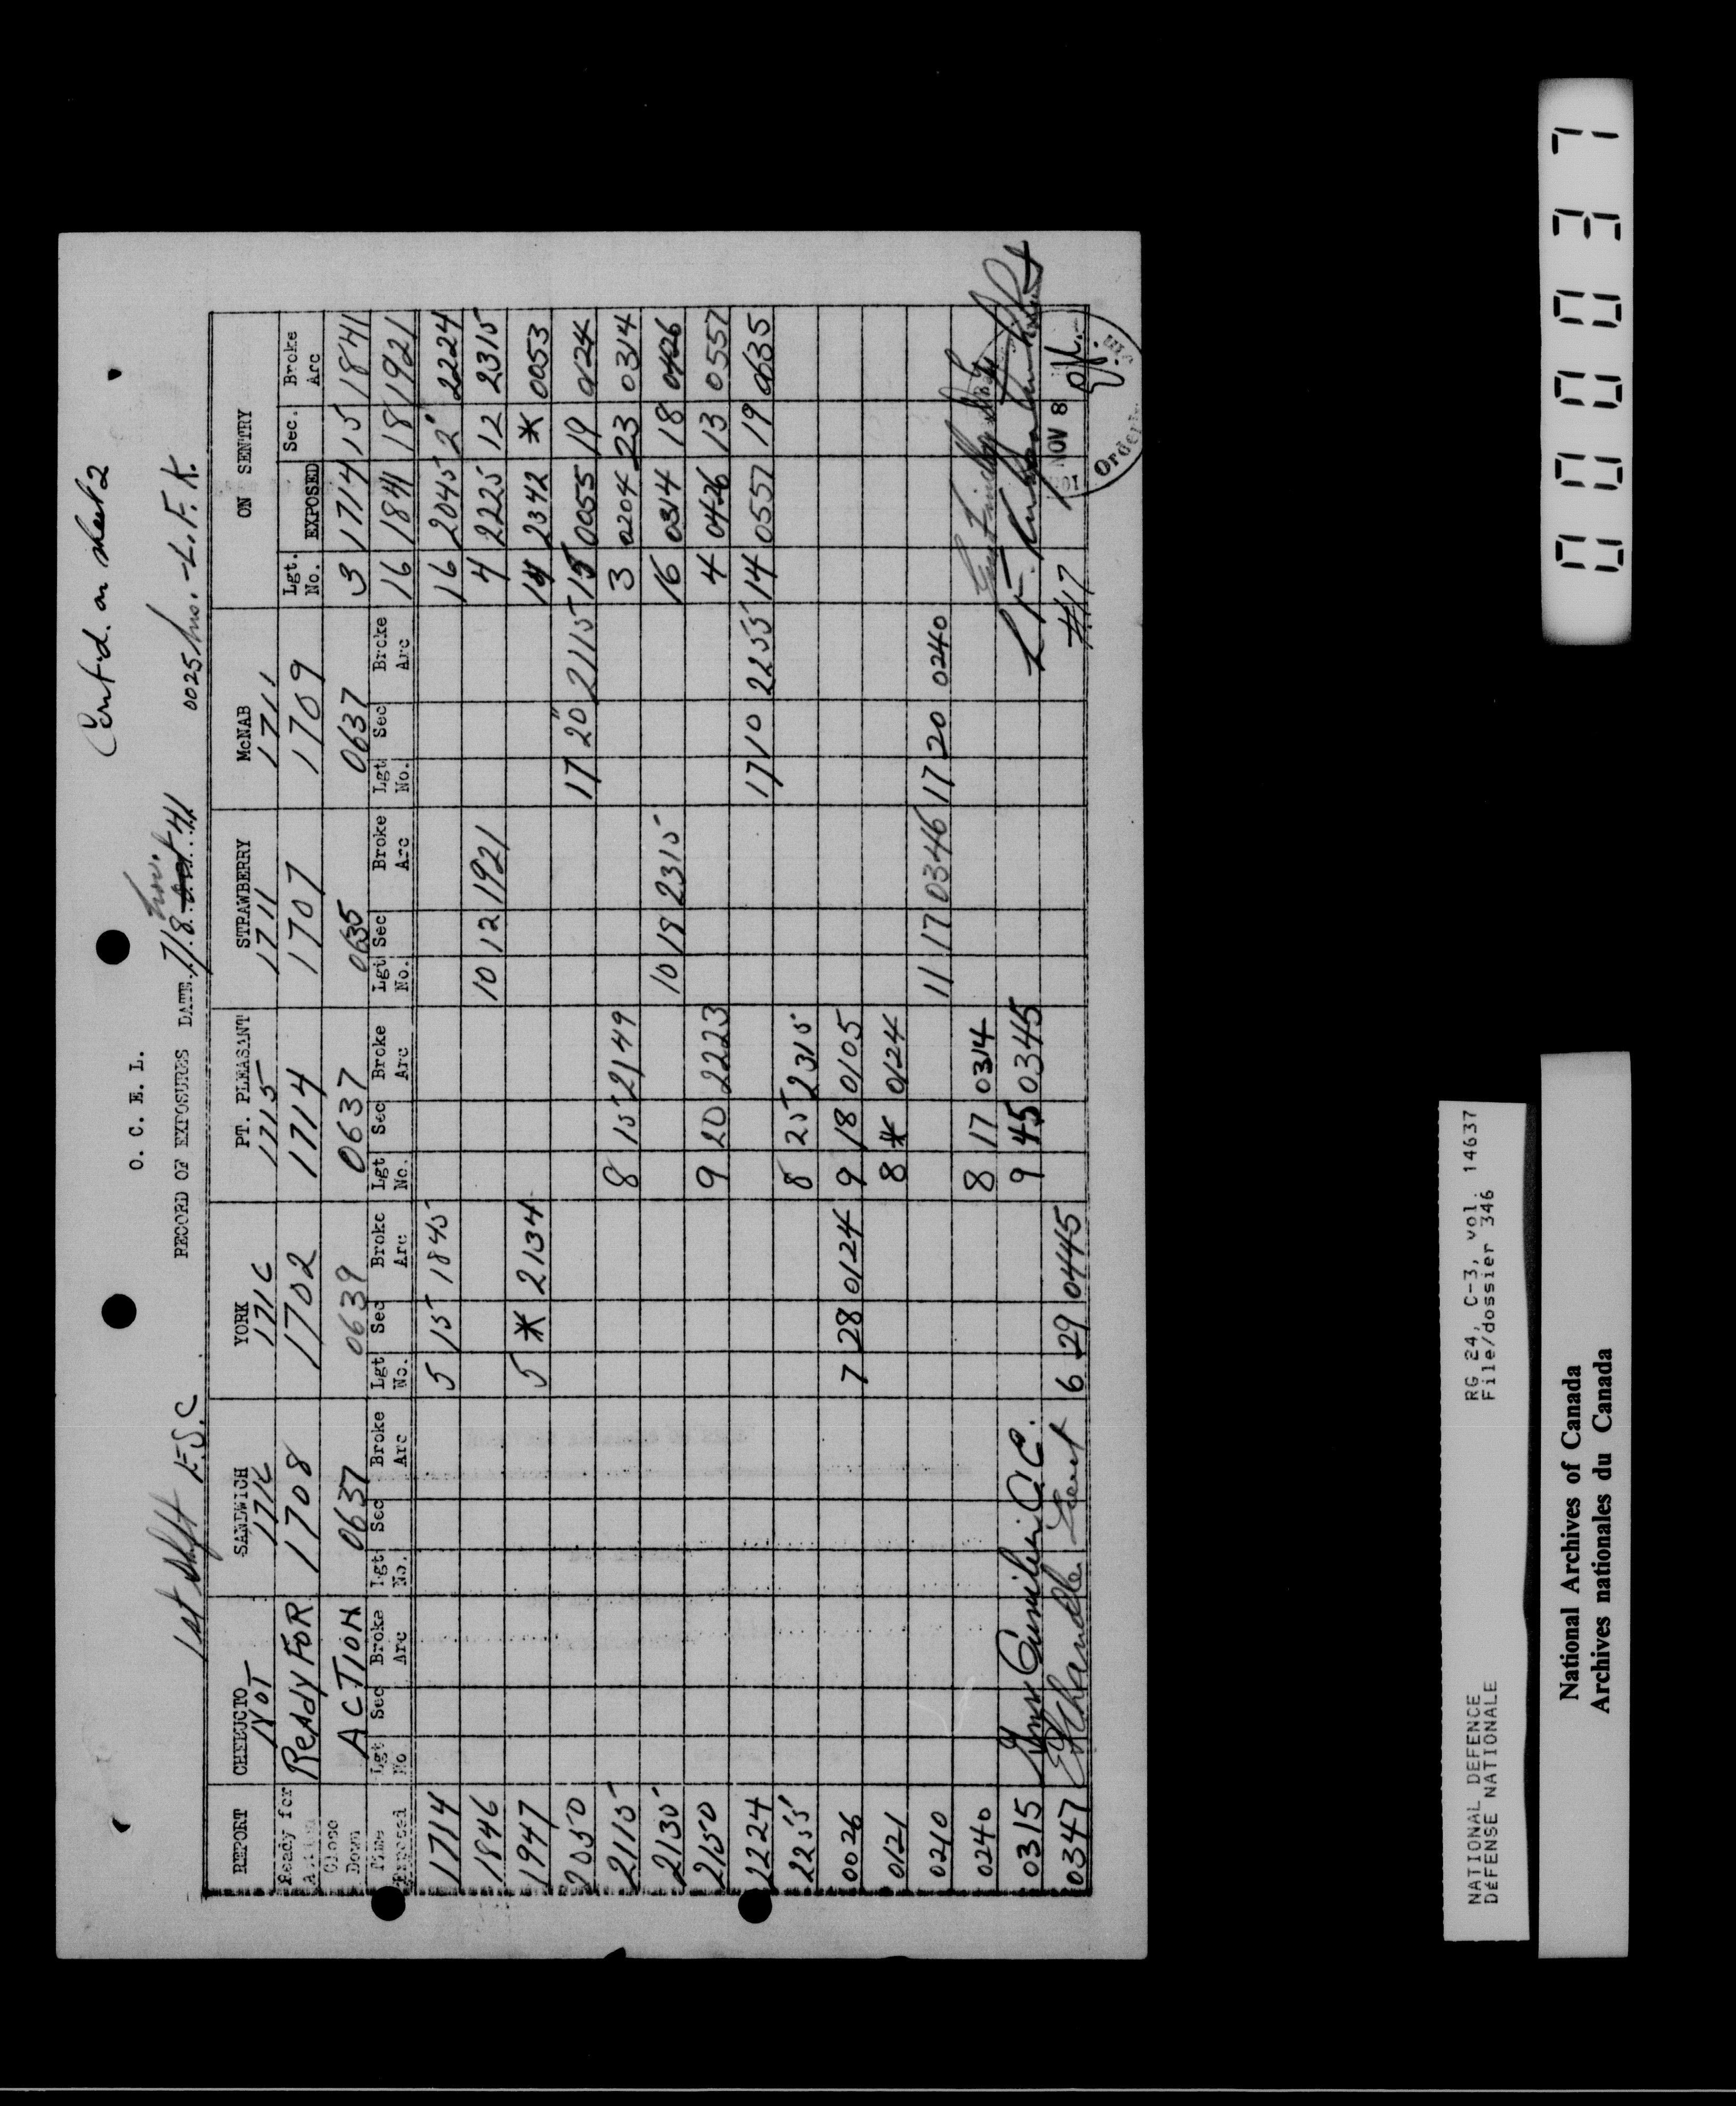 Cont'd. on sheet 2
O. C. E. L.
1st Shift F.S.C RECORD OF EXPOSURES DATE 7/8 Nov. Oct 41 0025 hrs. - L.F.K.
REPORT CHEBUCTO SANDWICH YORK PT. PLEASANT STRAWBERRY McNAB ON SENTRY
NOT 1716 1716 1715 1711 1711
Ready for Action ReAdy FOR 1708 1702 1714 1707 1709 Lgt. No. EXPOSED Sec. Broke Arc
Close Down ACTION 0637 0639 0637 0635 0637 3 1714 15 1841
Time Exposed Lgt No. Sec Broke Arc Lgt No. Sec Broke Arc Lgt No. Sec Broke Arc Lgt No. Sec Broke Arc Lgt No. Sec Broke Arc Lgt No. Sec Broke Arc 16 1841 18 1921
1714 5 15 1845 16 2045 2" 2224
1846 10 12 1921 4 2225 12 2315
1947 5 * 2134 14 2342 * 0053
2050 17 20" 2115 15 0055 19 0124
2115 8 15 2149 3 0204 23 0314
2135 10 19 2315 16 0314 18 0426
2150 9 20 2223 4 0426 13 0557
2224 17 10 2255 14 0557 19 0635
2255 8 25 2315
0026 7 28 0124 9 18 0105
0121 8 * 0124
0210 11 17 0346 17 20 0240
0240 8 17 0314
0315 9 45 0345 L F.
0347 6 29 0445 #17
NOV 8
Order
NATIONAL DEFENCE RG 24, C-3, vol. 14637
DÉFENSE NATIONALE File/dossier 346
National Archives of Canada
Archives nationales du Canada
000037